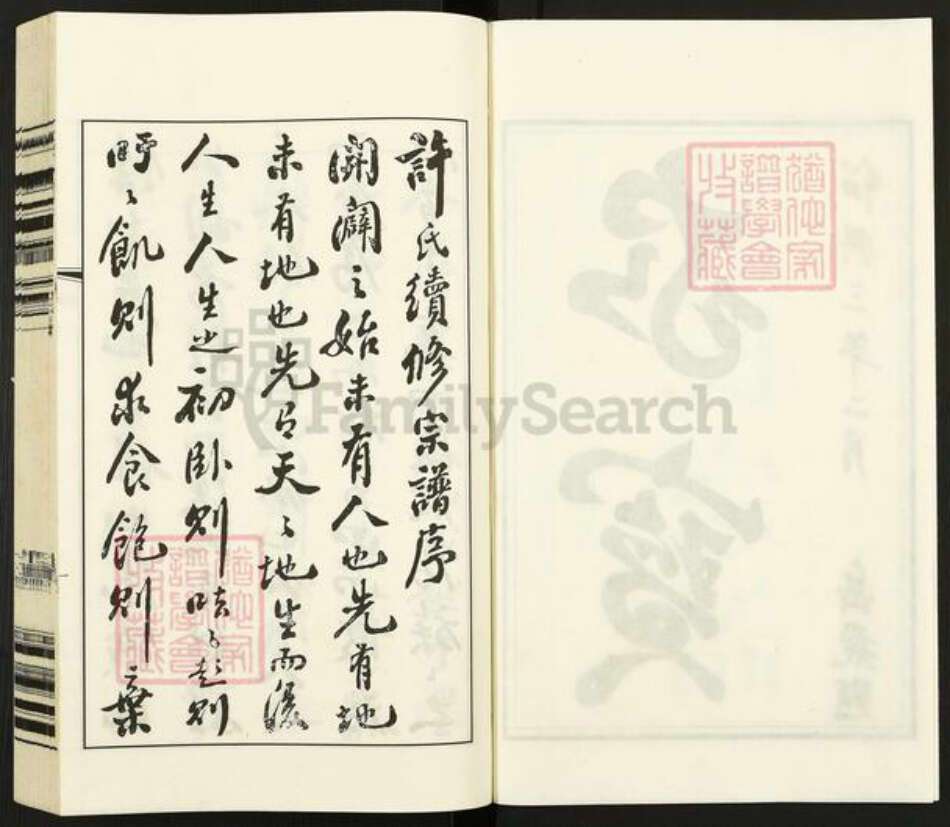 許氏續修宗譜序
開闢之始未有人也先有地
未有地也先有天天地生而後
人生人生之初卧則呿呿起則
吁吁飢則求食飽則棄
FamilySearch
譜學會
收藏